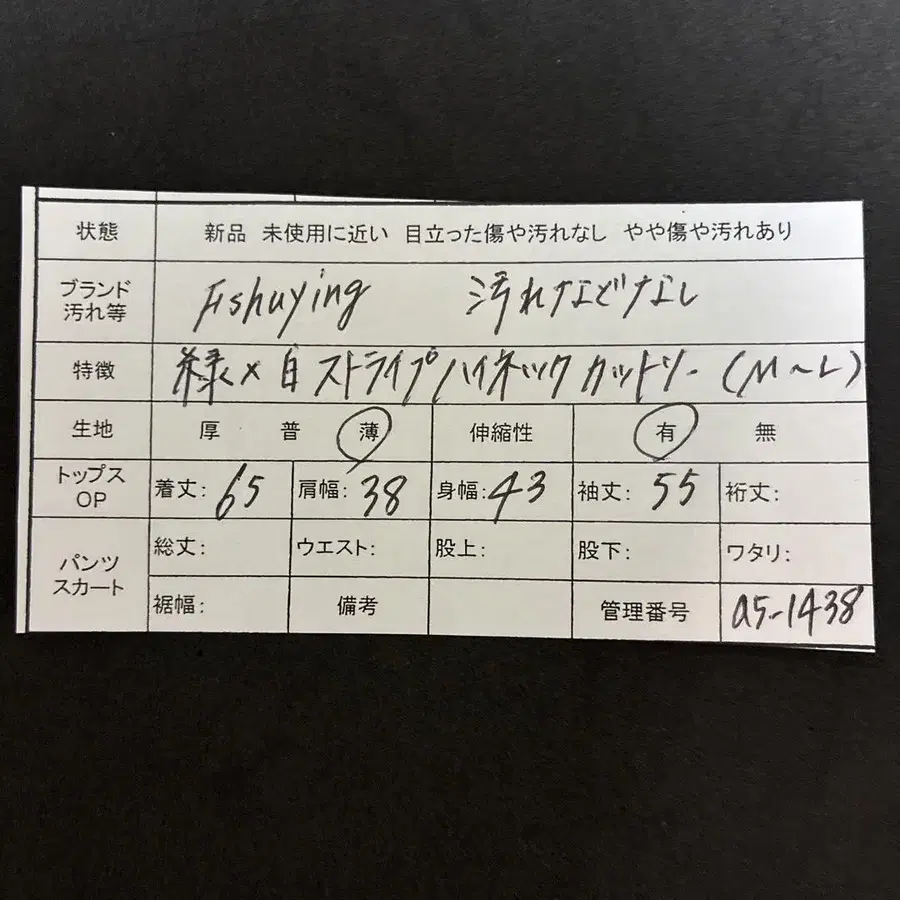 状態 新品 未使用に近い 目立った傷や汚れなし やや傷や汚れあり
ブランド
汚れ等 Fishuying 汚れなどなし
特徴 緑×白 ストライプハイネック カットソー (M~L)
生地 厚 普 薄 伸縮性 有 無
トップス
OP 着丈: 65 肩幅: 38 身幅: 43 袖丈: 55 裄丈:
パンツ
スカート 総丈: ウエスト: 股上: 股下: ワタリ:
裾幅: 備考 管理番号 a5-1438